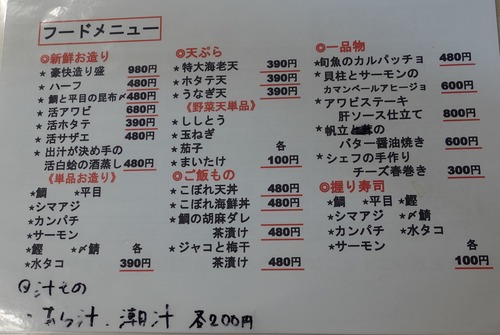 フードメニュー
◎新鮮お造り
★豪快造り盛 980円
★ハーフ 480円
★鯛と平目の昆布〆 480円
★活アワビ 680円
★活ホタテ 390円
★活サザエ 480円
★出汁が決め手の
活白蛤の酒蒸し 480円
《単品お造り》
★鯛 ★平目
★シマアジ
★カンパチ
★サーモン
★鰹 ★〆鯖 各
★水タコ 390円
◎天ぷら
★特大海老天 390円
★ホタテ天 390円
★うなぎ天 390円
《野菜天単品》
★ししとう
★玉ねぎ
★茄子 各
★まいたけ 100円
◎ご飯もの
★こぼれ天丼 480円
★こぼれ海鮮丼 480円
★鯛の胡麻ダレ
茶漬け 480円
★ジャコと梅干
茶漬け 480円
◎一品物
★旬魚のカルパッチョ 480円
★貝柱とサーモンの
カマンベールアヒージョ 600円
★アワビステーキ
肝ソース仕立て 800円
★帆立の
バター醤油焼き 600円
★シェフの手作り
チーズ春巻き 300円
◎握り寿司
★鯛 ★平目 ★鰹
★シマアジ ★〆鯖
★カンパチ ★水タコ
★サーモン 各
100円
◎汁もの
・あら汁、潮汁 各200円